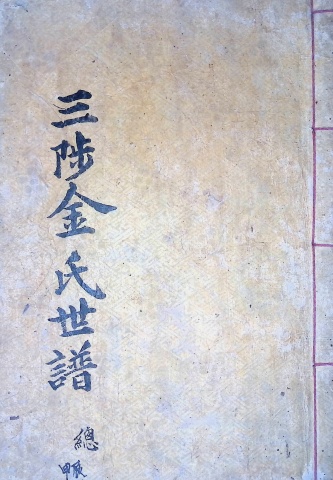 三陟金氏世譜
總
甲辰